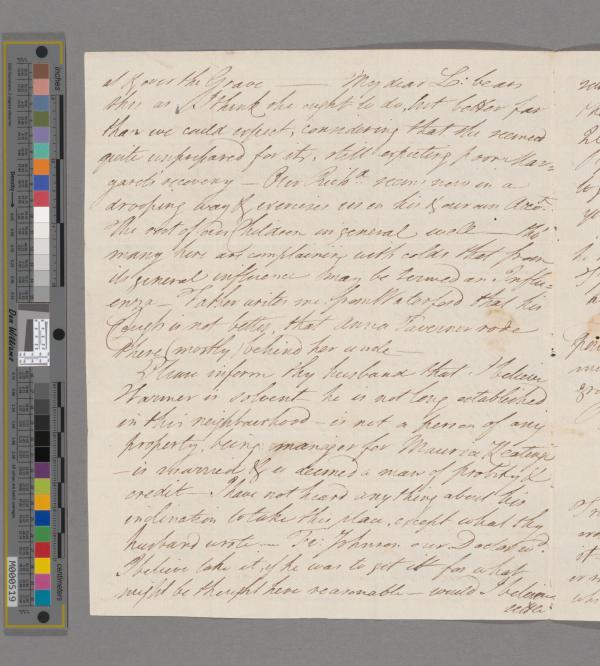 at & over the Grave —— My dear L: bears
this as I think she ought to do, but better far
than we could expect, considering that she seemed
quite unprepared for it, still expecting poor Mar-
garets recovery — Our Rich.d seems now in a
drooping way & exercises us on his & our own acct.
The rest of our Children in general well — tho'
many here are complaining with colds that from
its general influence may be termed an Influ-
enza — Father writes me from Waterford that his
Cough is not better, that Anna Taverner rode
there (mostly) behind her uncle —
Please inform thy husband that I believe
Warmer is solvent he is not long established
in this neighbourhood — is not a person of any
property, being manager for Maurice Keating
— is married & is deemed a man of probity &
credit — I have not heard any thing about his
inclination to take this place, except what thy
husband wrote — Johnson our Doctor wd.
I believe take it, if he was to get it for what
might be thought here reasonable — would I believe
better
inches
centimeters
Don Williams
M000519